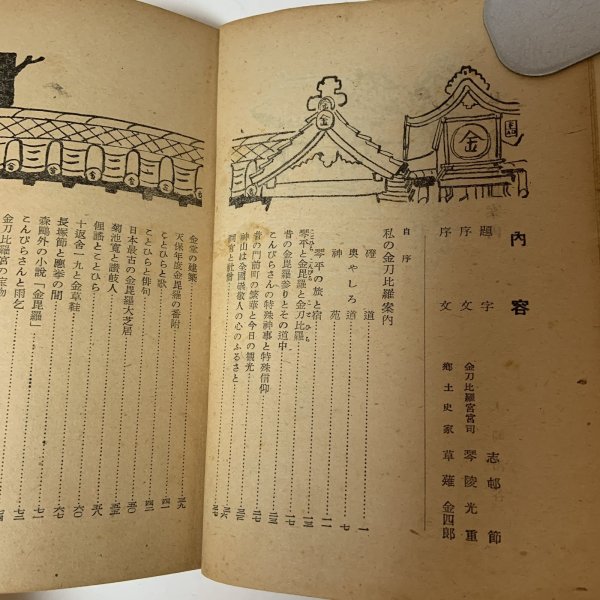 内容
題字 志邨節
序文 金刀比羅宮宮司 琴陵光重
序文 郷土史家 草薙金四郎
自序
私の金刀比羅案内
道 一
奥やしろ道 七
神苑 一一
琴平の旅と宿 一三
琴平と金毘羅と金刀比羅 一五
昔の金毘羅参りとその道中 一七
こんぴらさんの特殊神事と特殊信仰
昔の門前町の繁華と今日の観光
神山は全國崇敬人の心のふるさと
金堂の建築 三九
天保年度金毘羅の番附
ことひらと歌 四一
ことひらと俳句 四二
日本最古の金毘羅大芝居 五〇
菊池寛と讃岐人 五五
俚謡とことひら 五八
十返舎一九と金草鞋 六一
長塚節と應挙の間 六七
森鷗外の小説「金毘羅」 七一
こんぴらさんと雨乞 七二
金刀比羅宮の宝物
金
金
金